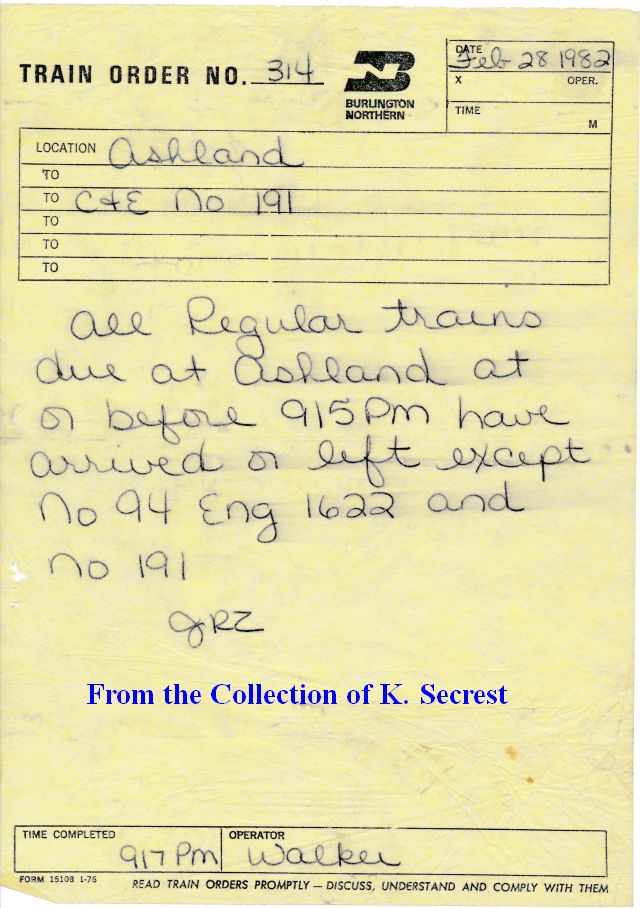 TRAIN ORDER NO. 314
BURLINGTON
NORTHERN
DATE
Feb 28 1982
X OPER.
TIME
M
LOCATION Ashland
TO
TO C&E No 191
TO
TO
TO
All Regular trains
due at Ashland at
or before 915 Pm have
arrived or left except
No 94 Eng 1622 and
No 191
JRZ
From the Collection of K. Secrest
TIME COMPLETED
917 Pm
OPERATOR
Walker
FORM 15103 1-76
READ TRAIN ORDERS PROMPTLY — DISCUSS, UNDERSTAND AND COMPLY WITH THEM